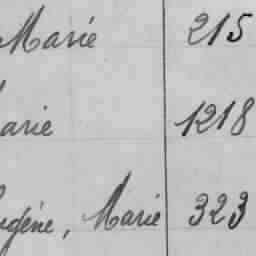 Marie 215
Marie 1218
Eugène, Marie 323